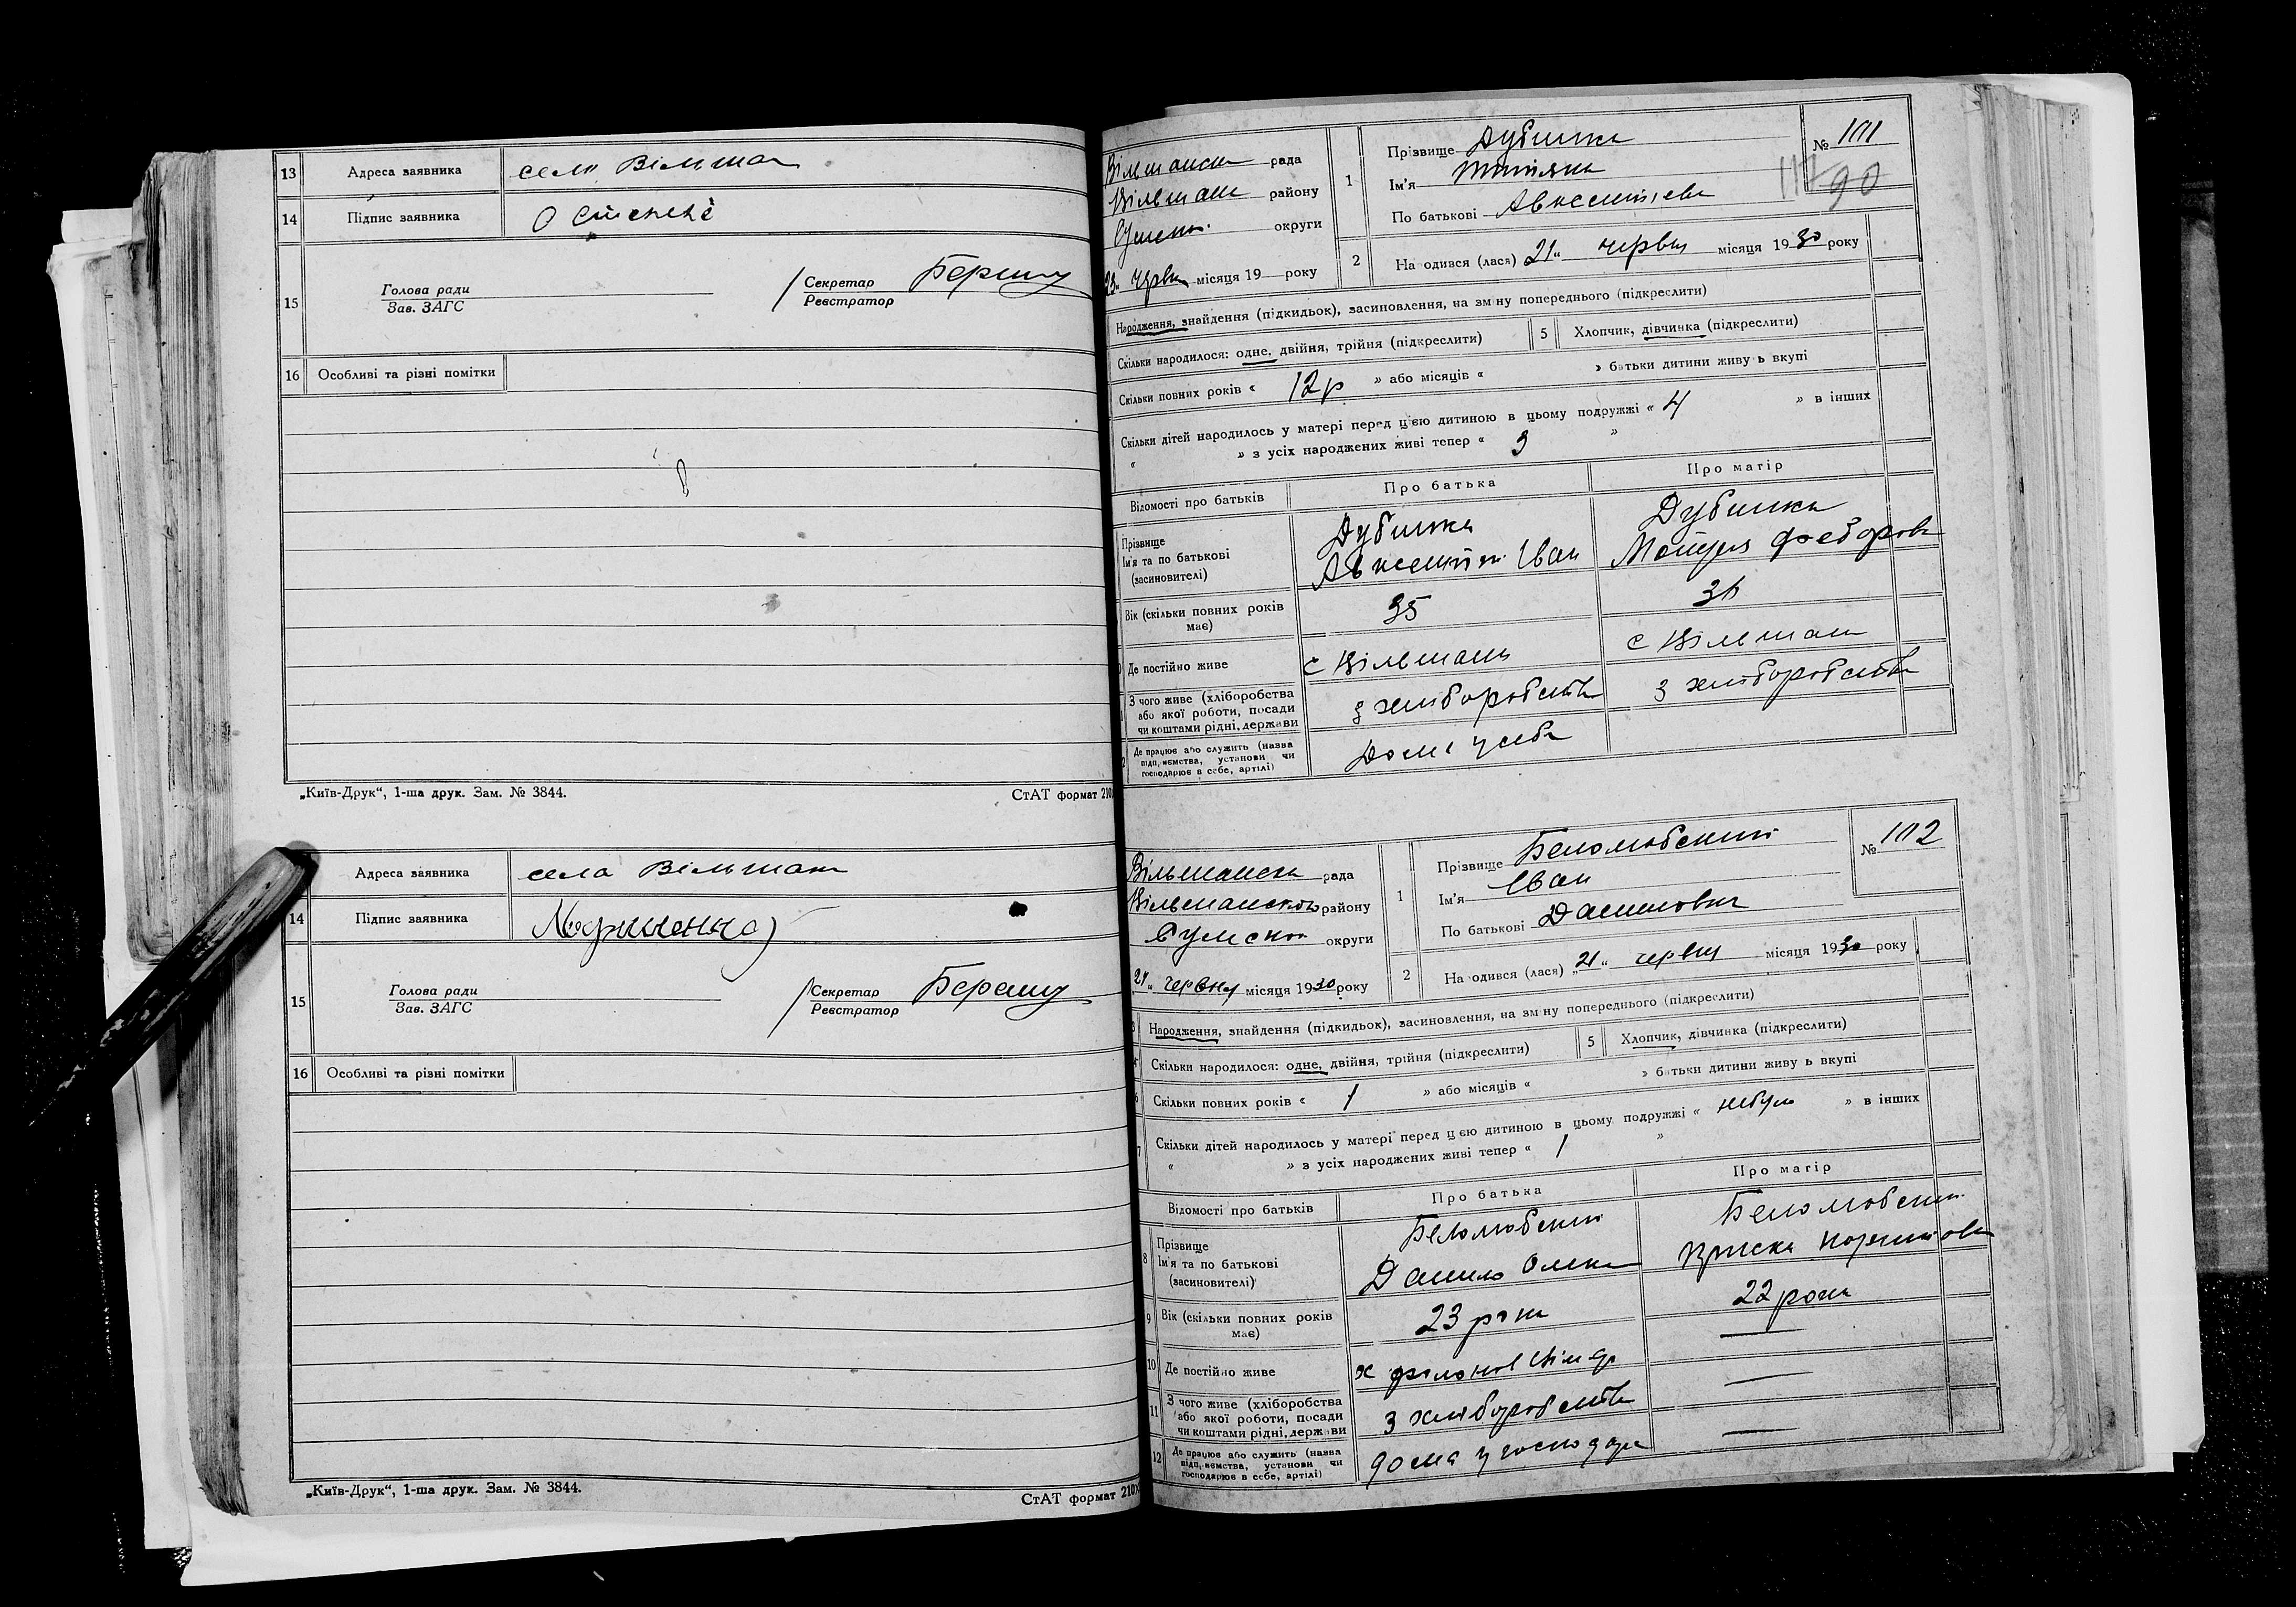 13 Адреса заявника село Вільшана
14 Підпис заявника О Стененé
15 Голова ради
Зав. ЗАГС
Секретар
Реєстратор
16 Особливі та різні помітки
„Київ-Друк“, 1-ша друк. Зам. № 3844. СтАТ формат 210
Адреса заявника села Вільшана
14 Підпис заявника
15 Голова ради
Зав. ЗАГС
Секретар
Реєстратор
16 Особливі та різні помітки
„Київ-Друк“, 1-ша друк. Зам. № 3844. СтАТ формат 210Х
Вільшанська рада
Вільшан району
Сумська округи
23 червня місяця 19 року
1 Прізвище Дубинка
Ім'я Тетяна
По батькові Авксентієва
№ 101
90
2 На одився (лася) 21 „ червня місяця 1930 року
Народження, знайдення (підкидьок), засиновлення, на зміну попереднього (підкреслити)
Скільки народилося: одне, двійня, трійня (підкреслити) 5 Хлопчик, дівчинка (підкреслити)
Скільки повних років « 12 р » або місяців « » батьки дитини живуть вкупі
Скільки дітей народилось у матері перед цією дитиною в цьому подружжі « 4 » в інших
« » з усіх народжених живі тепер « 3 »
Відомості про батьків Про батька Про матір
Прізвище Дубинка Дубинка
Ім'я та по батькові Авксентій Іван Мотря Федорова
(засиновителі)
Вік (скільки повних років має) 35 31
Де постійно живе с Вільшана с Вільшана
З чого живе (хліборобства або якої роботи, посади чи коштами рідні, держави з хліборобства з хліборобства
Де працює або служить (назва підприємства, установи чи господарює в себе, артілі) Дома у себе
Вільшанська рада
Вільшанського району
Сумська округи
21 „ червня місяця 1930 року
1 Прізвище Белолюбський
Ім'я Іван
По батькові Данилович
№ 102
2 На одився (лася) „21 „ червня місяця 1930 року
3 Народження, знайдення (підкидьок), засиновлення, на зміну попереднього (підкреслити)
4 Скільки народилося: одне, двійня, трійня (підкреслити) 5 Хлопчик, дівчинка (підкреслити)
6 Скільки повних років « 1 » або місяців « » батьки дитини живуть вкупі
7 Скільки дітей народилось у матері перед цією дитиною в цьому подружжі « небуло » в інших
« » з усіх народжених живі тепер « 1 »
Відомості про батьків Про батька Про матір
8 Прізвище Белолюбський Белолюбськ
Ім'я та по батькові Данило Олекс Пріська
(засиновителі)
9 Вік (скільки повних років має) 23 роки 22 роки
10 Де постійно живе х
11 З чого живе (хліборобства або якої роботи, посади чи коштами рідні, держави з хліборобства
12 Де працює або служить (назва підприємства, установи чи господарює в себе, артілі) дома у господар